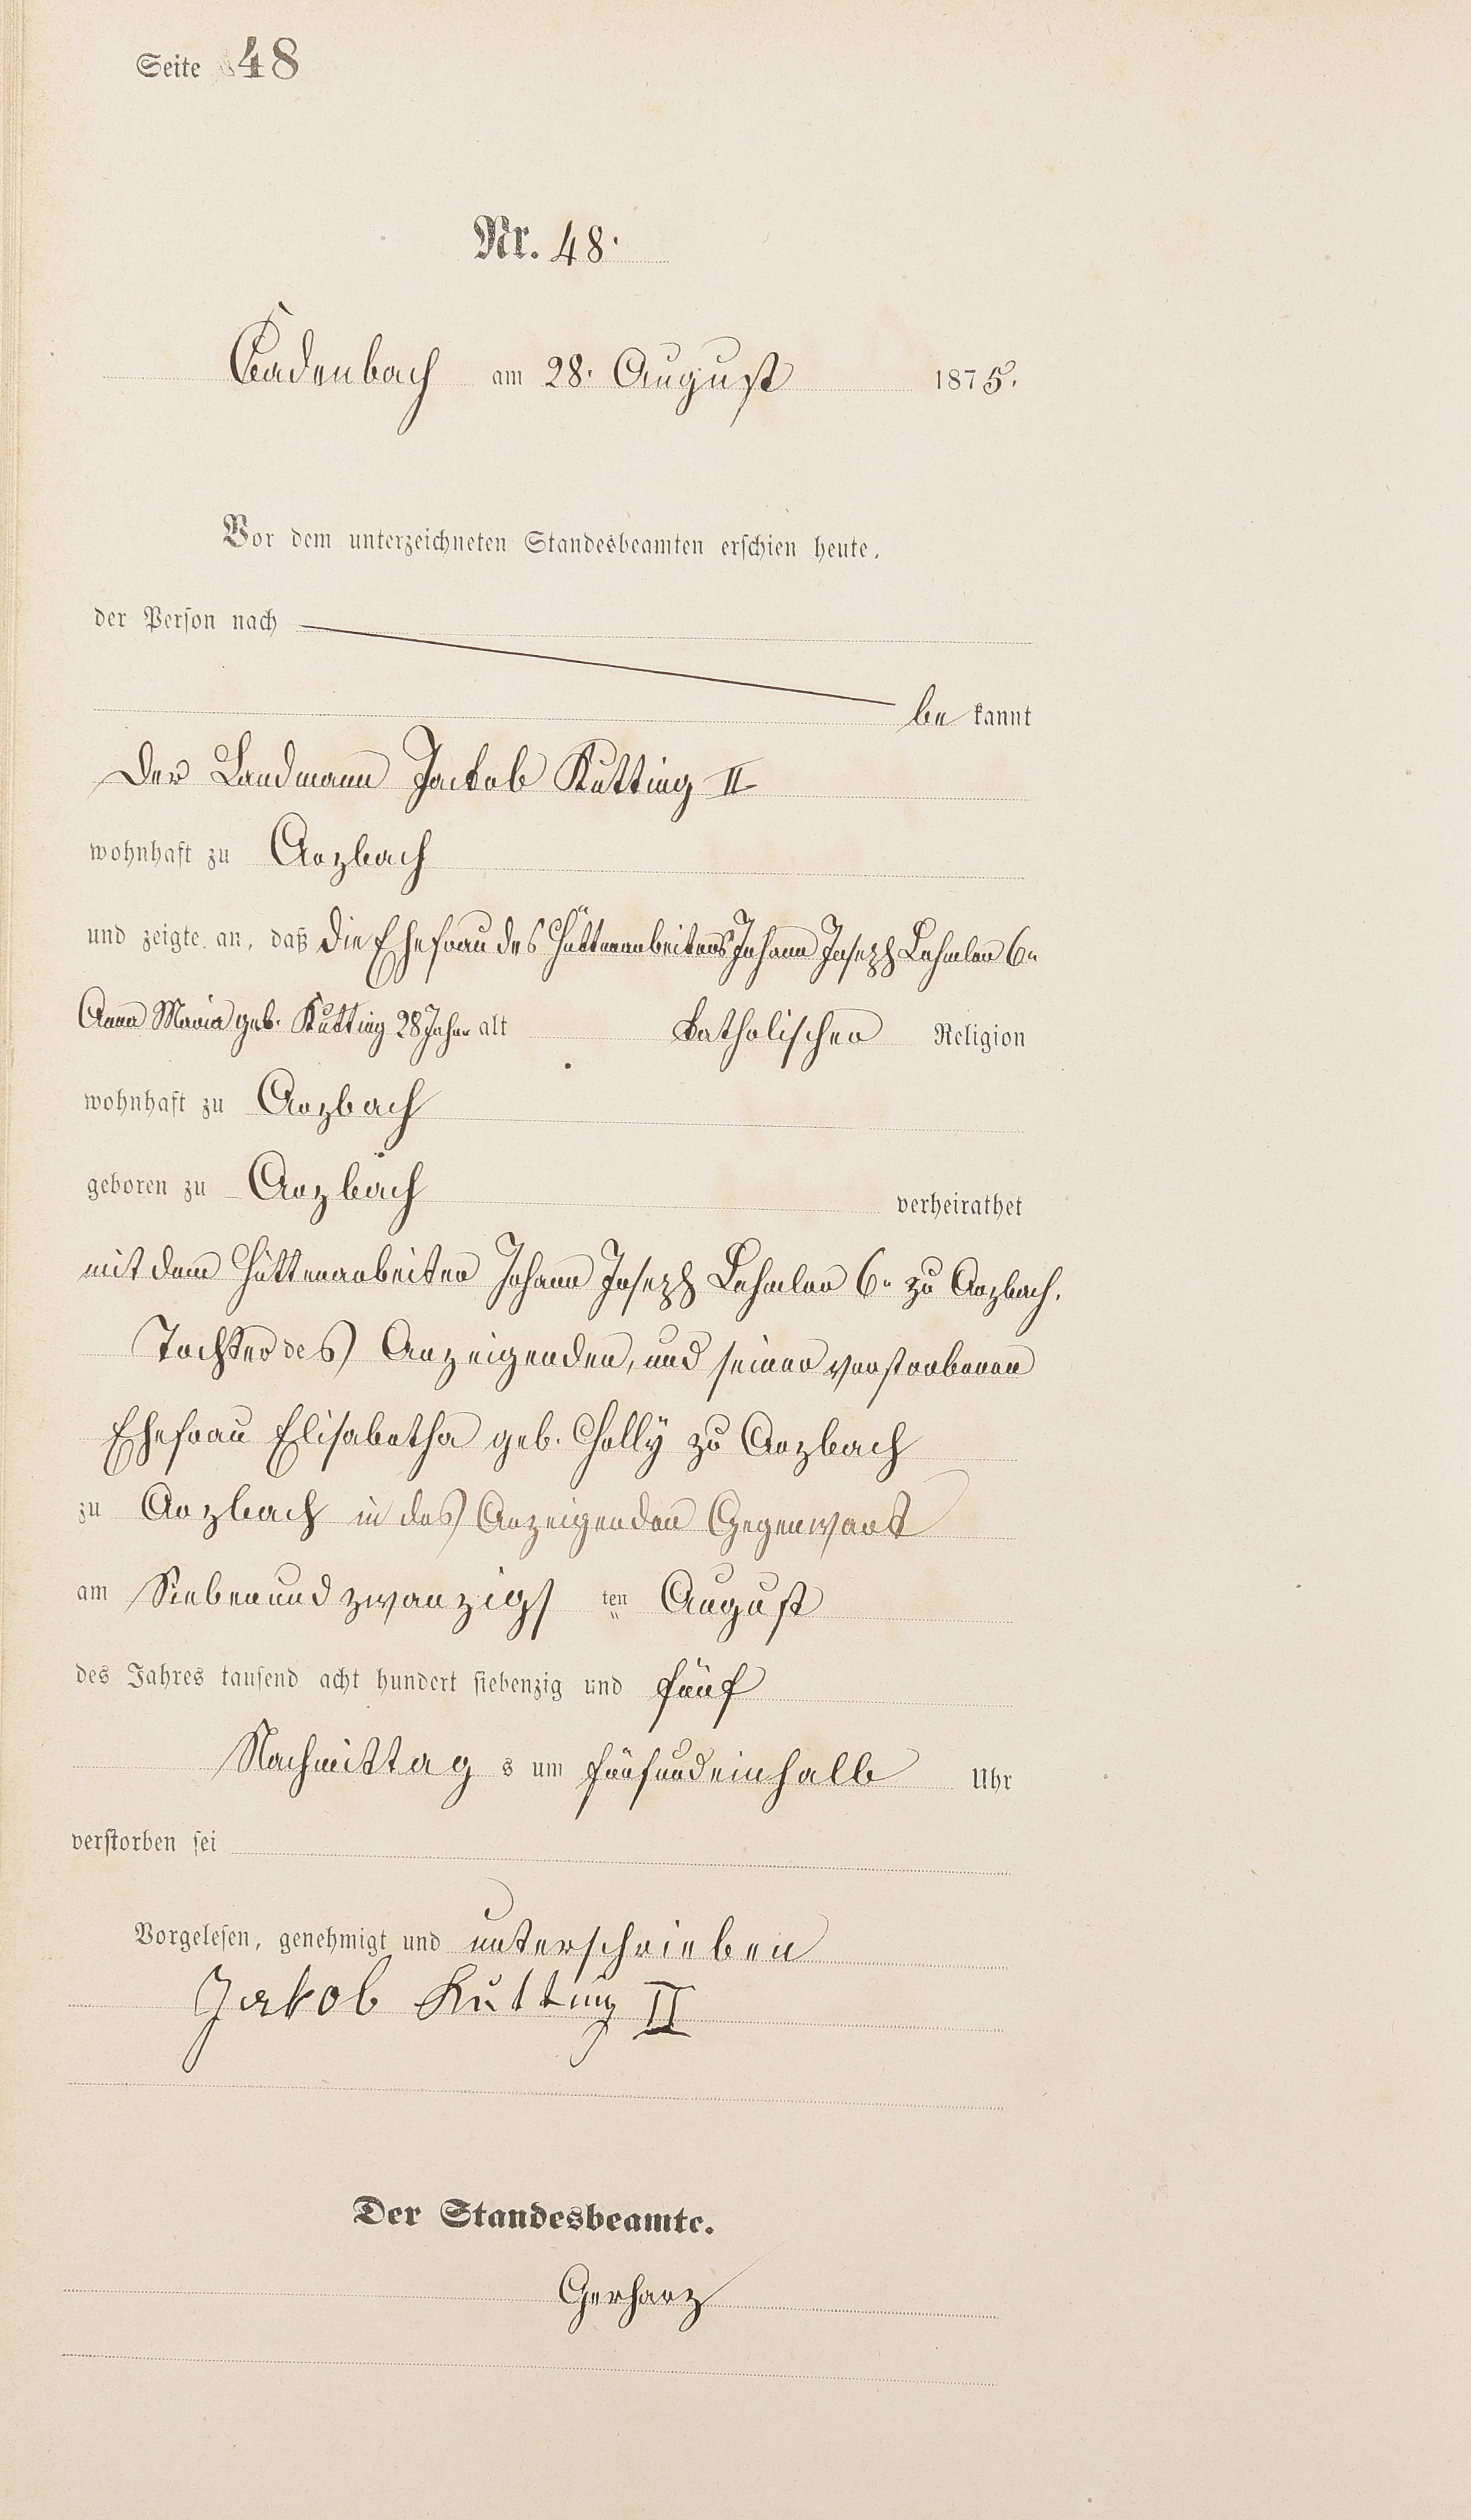 Seite 48
Nr. 48.
Cadenbach am 28. August 1875.
Vor dem unterzeichneten Standesbeamten erschien heute,
der Person nach
be kannt
Der Landmann Jackob Kutting II
wohnhaft zu Arzbach
und zeigte an, daß die Ehefrau des Hüttenarbeiters Johann Joseph Lehmler 6r
Anna Maria geb. Kutting 28 Jahre alt katholischer Religion
wohnhaft zu Arzbach
geboren zu Arzbach verheirathet
mit dem Hüttenarbeiter Johann Joseph Lehmler 6r zu Arzbach.
Tochter des Anzeigenden, und seiner verstorbenen
Ehefrau Elisabetha geb. Cholly zu Arzbach
zu Arzbach in des Anzeigenden Gegenwart
am Siebenundzwanzigs ten August
des Jahres tausend acht hundert siebenzig und fünf
Nachmittag s um fünfundeinhalb Uhr
verstorben sei
Vorgelesen, genehmigt und unterschrieben
Jakob Kutting II
Der Standesbeamte.
Gerharz